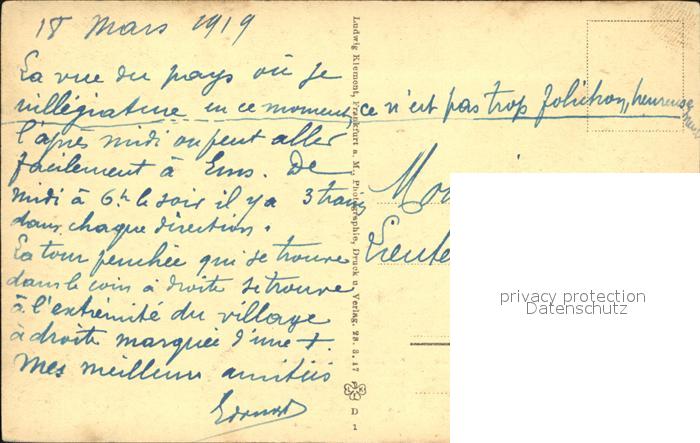 18 Mars 1919
La vue du pays où je
villégiature en ce moment, ce n'est pas trop folichon, heureuse
l'après midi on peut aller
facilement à Ems. De
midi à 6h. le soir il y a 3 trains
dans chaque direction.
La tour penchée qui se trouve
dans le coin à droite se trouve
à l'extrémité du village
à droite marquée d'une +.
Mes meilleures amitiés
Edouard
Ludwig Klement, Frankfurt a. M., Photographie, Druck u. Verlag. 28. 8. 17
D
1
Mon
Lieute
privacy protection
Datenschutz